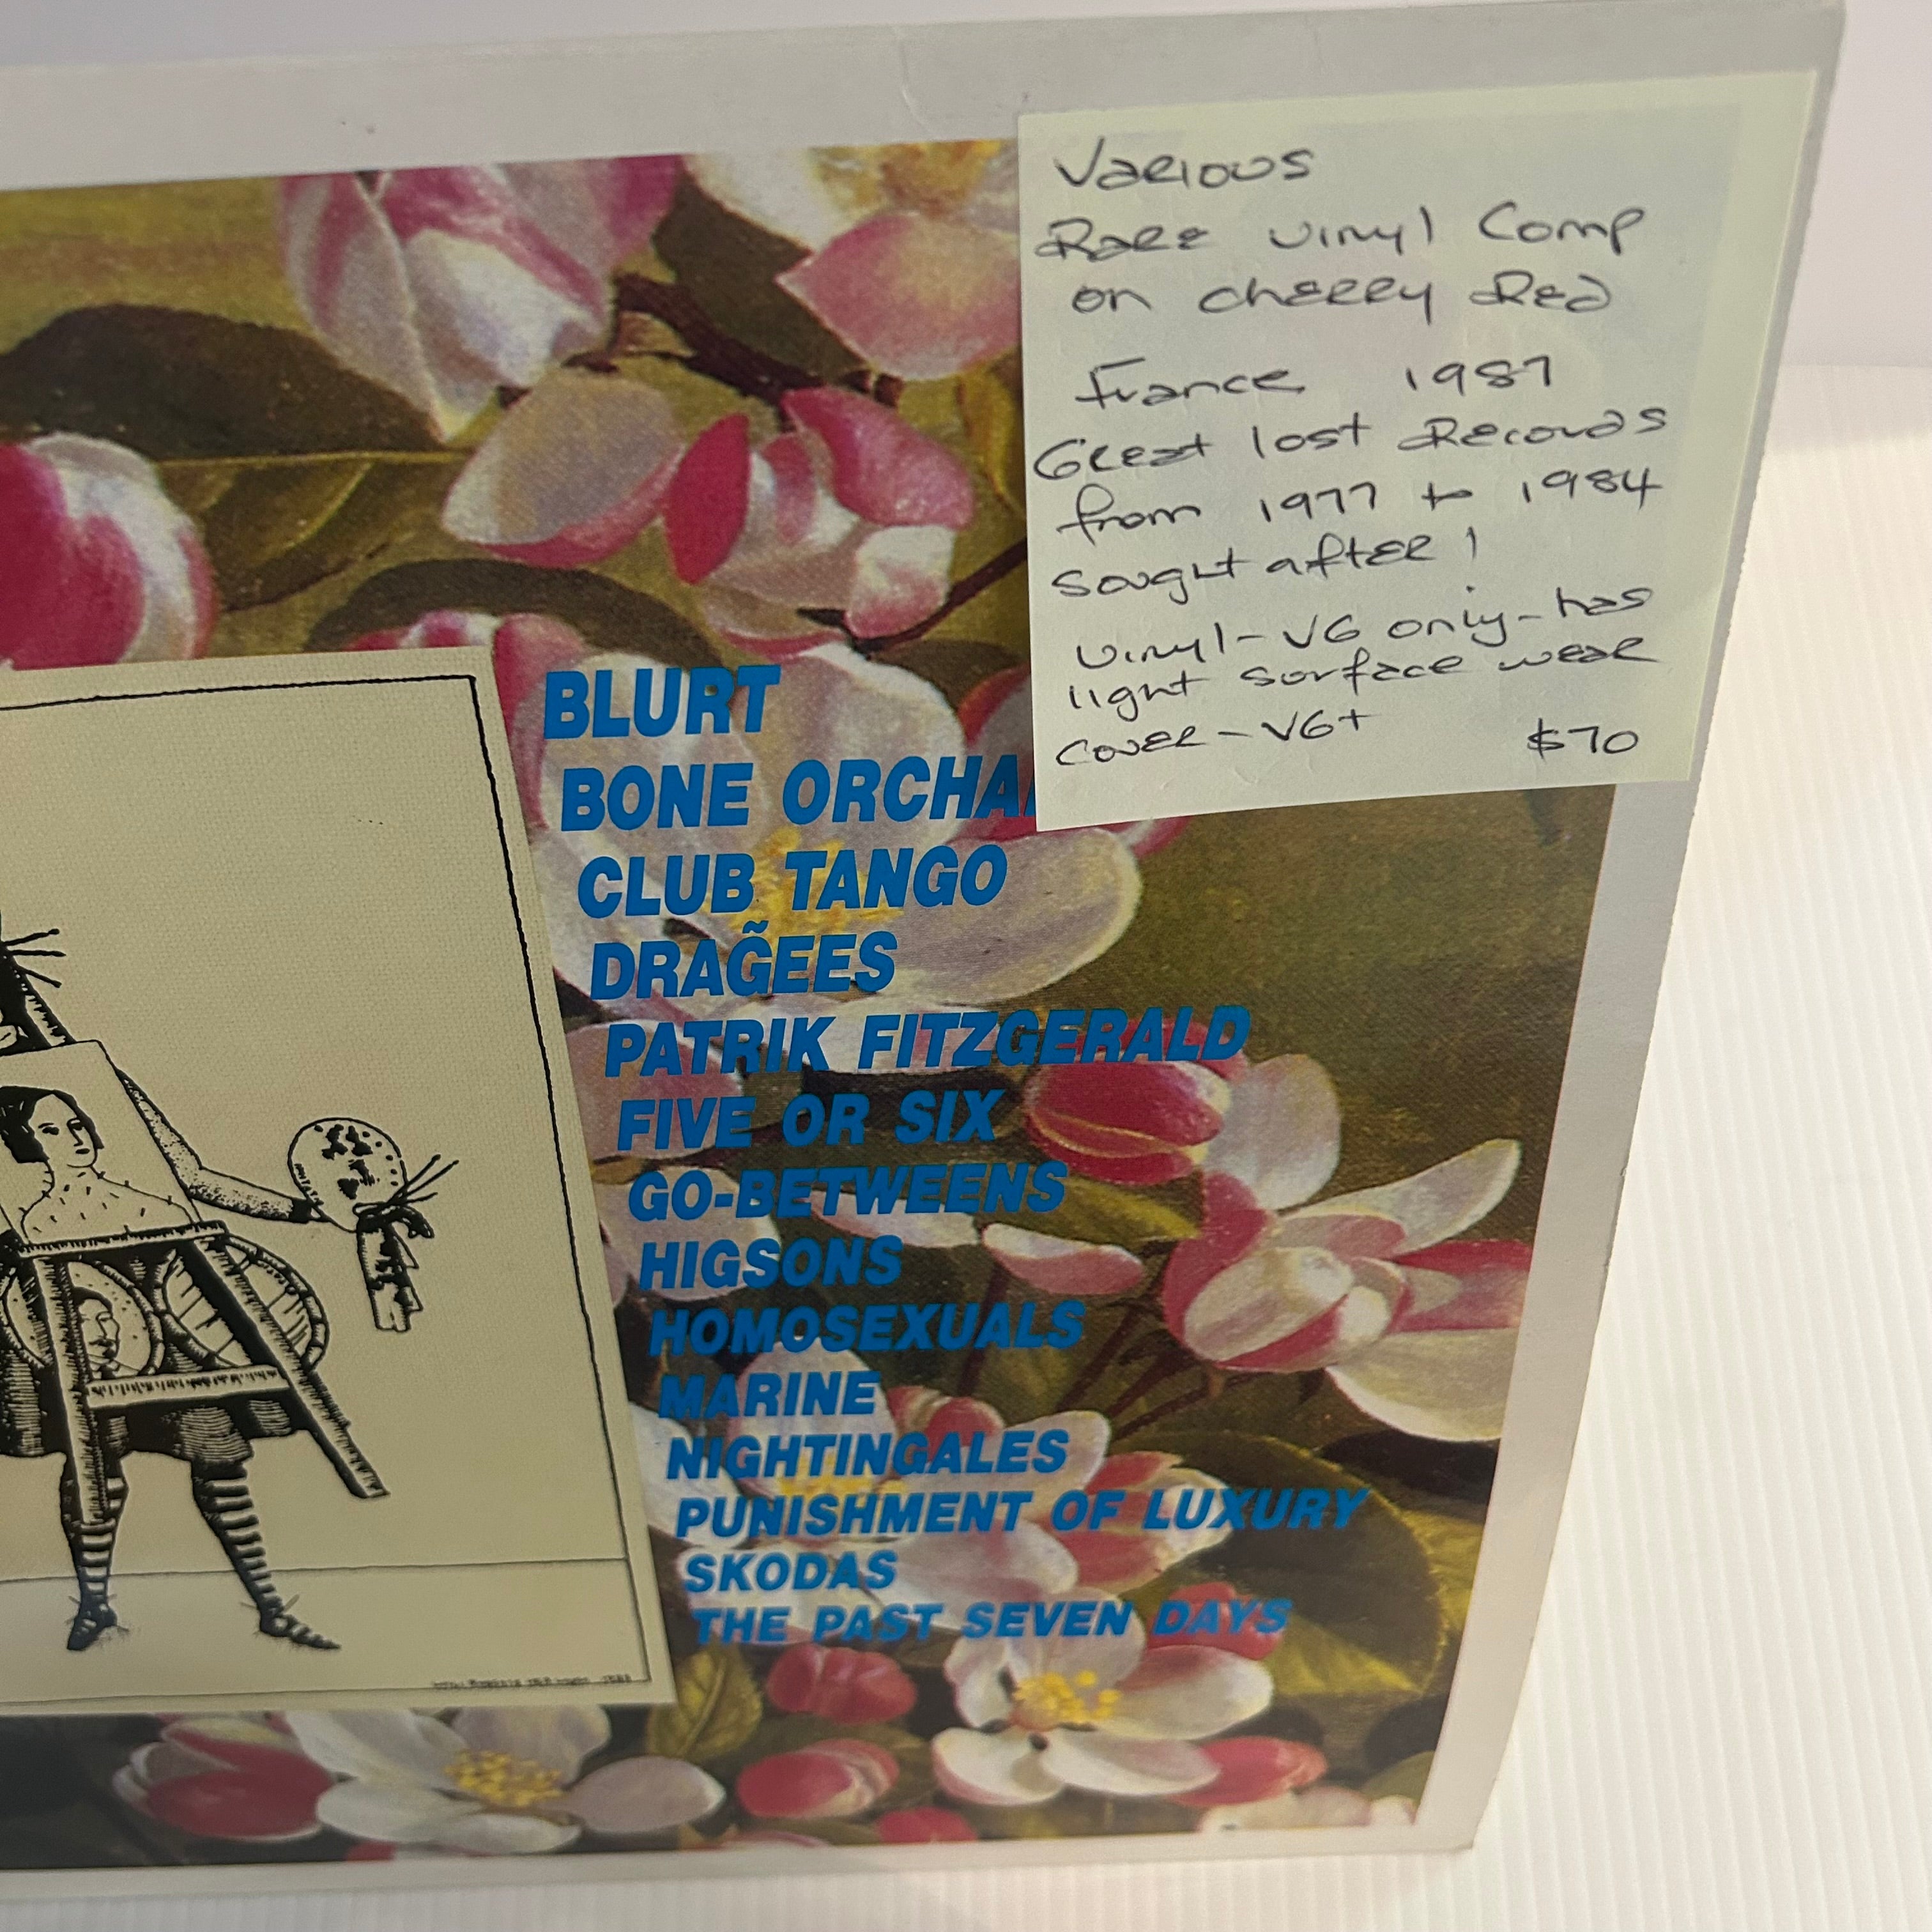 Various
Rare vinyl Comp
on cherry Red
France 1987
Great lost Records
from 1977 to 1984
sought after!
vinyl - VG only - has
light surface wear
cover - VG+ $70
BLURT
BONE ORCHA
CLUB TANGO
DRAG̃EES
PATRIK FITZGERALD
FIVE OR SIX
GO-BETWEENS
HIGSONS
HOMOSEXUALS
MARINE
NIGHTINGALES
PUNISHMENT OF LUXURY
SKODAS
THE PAST SEVEN DAYS